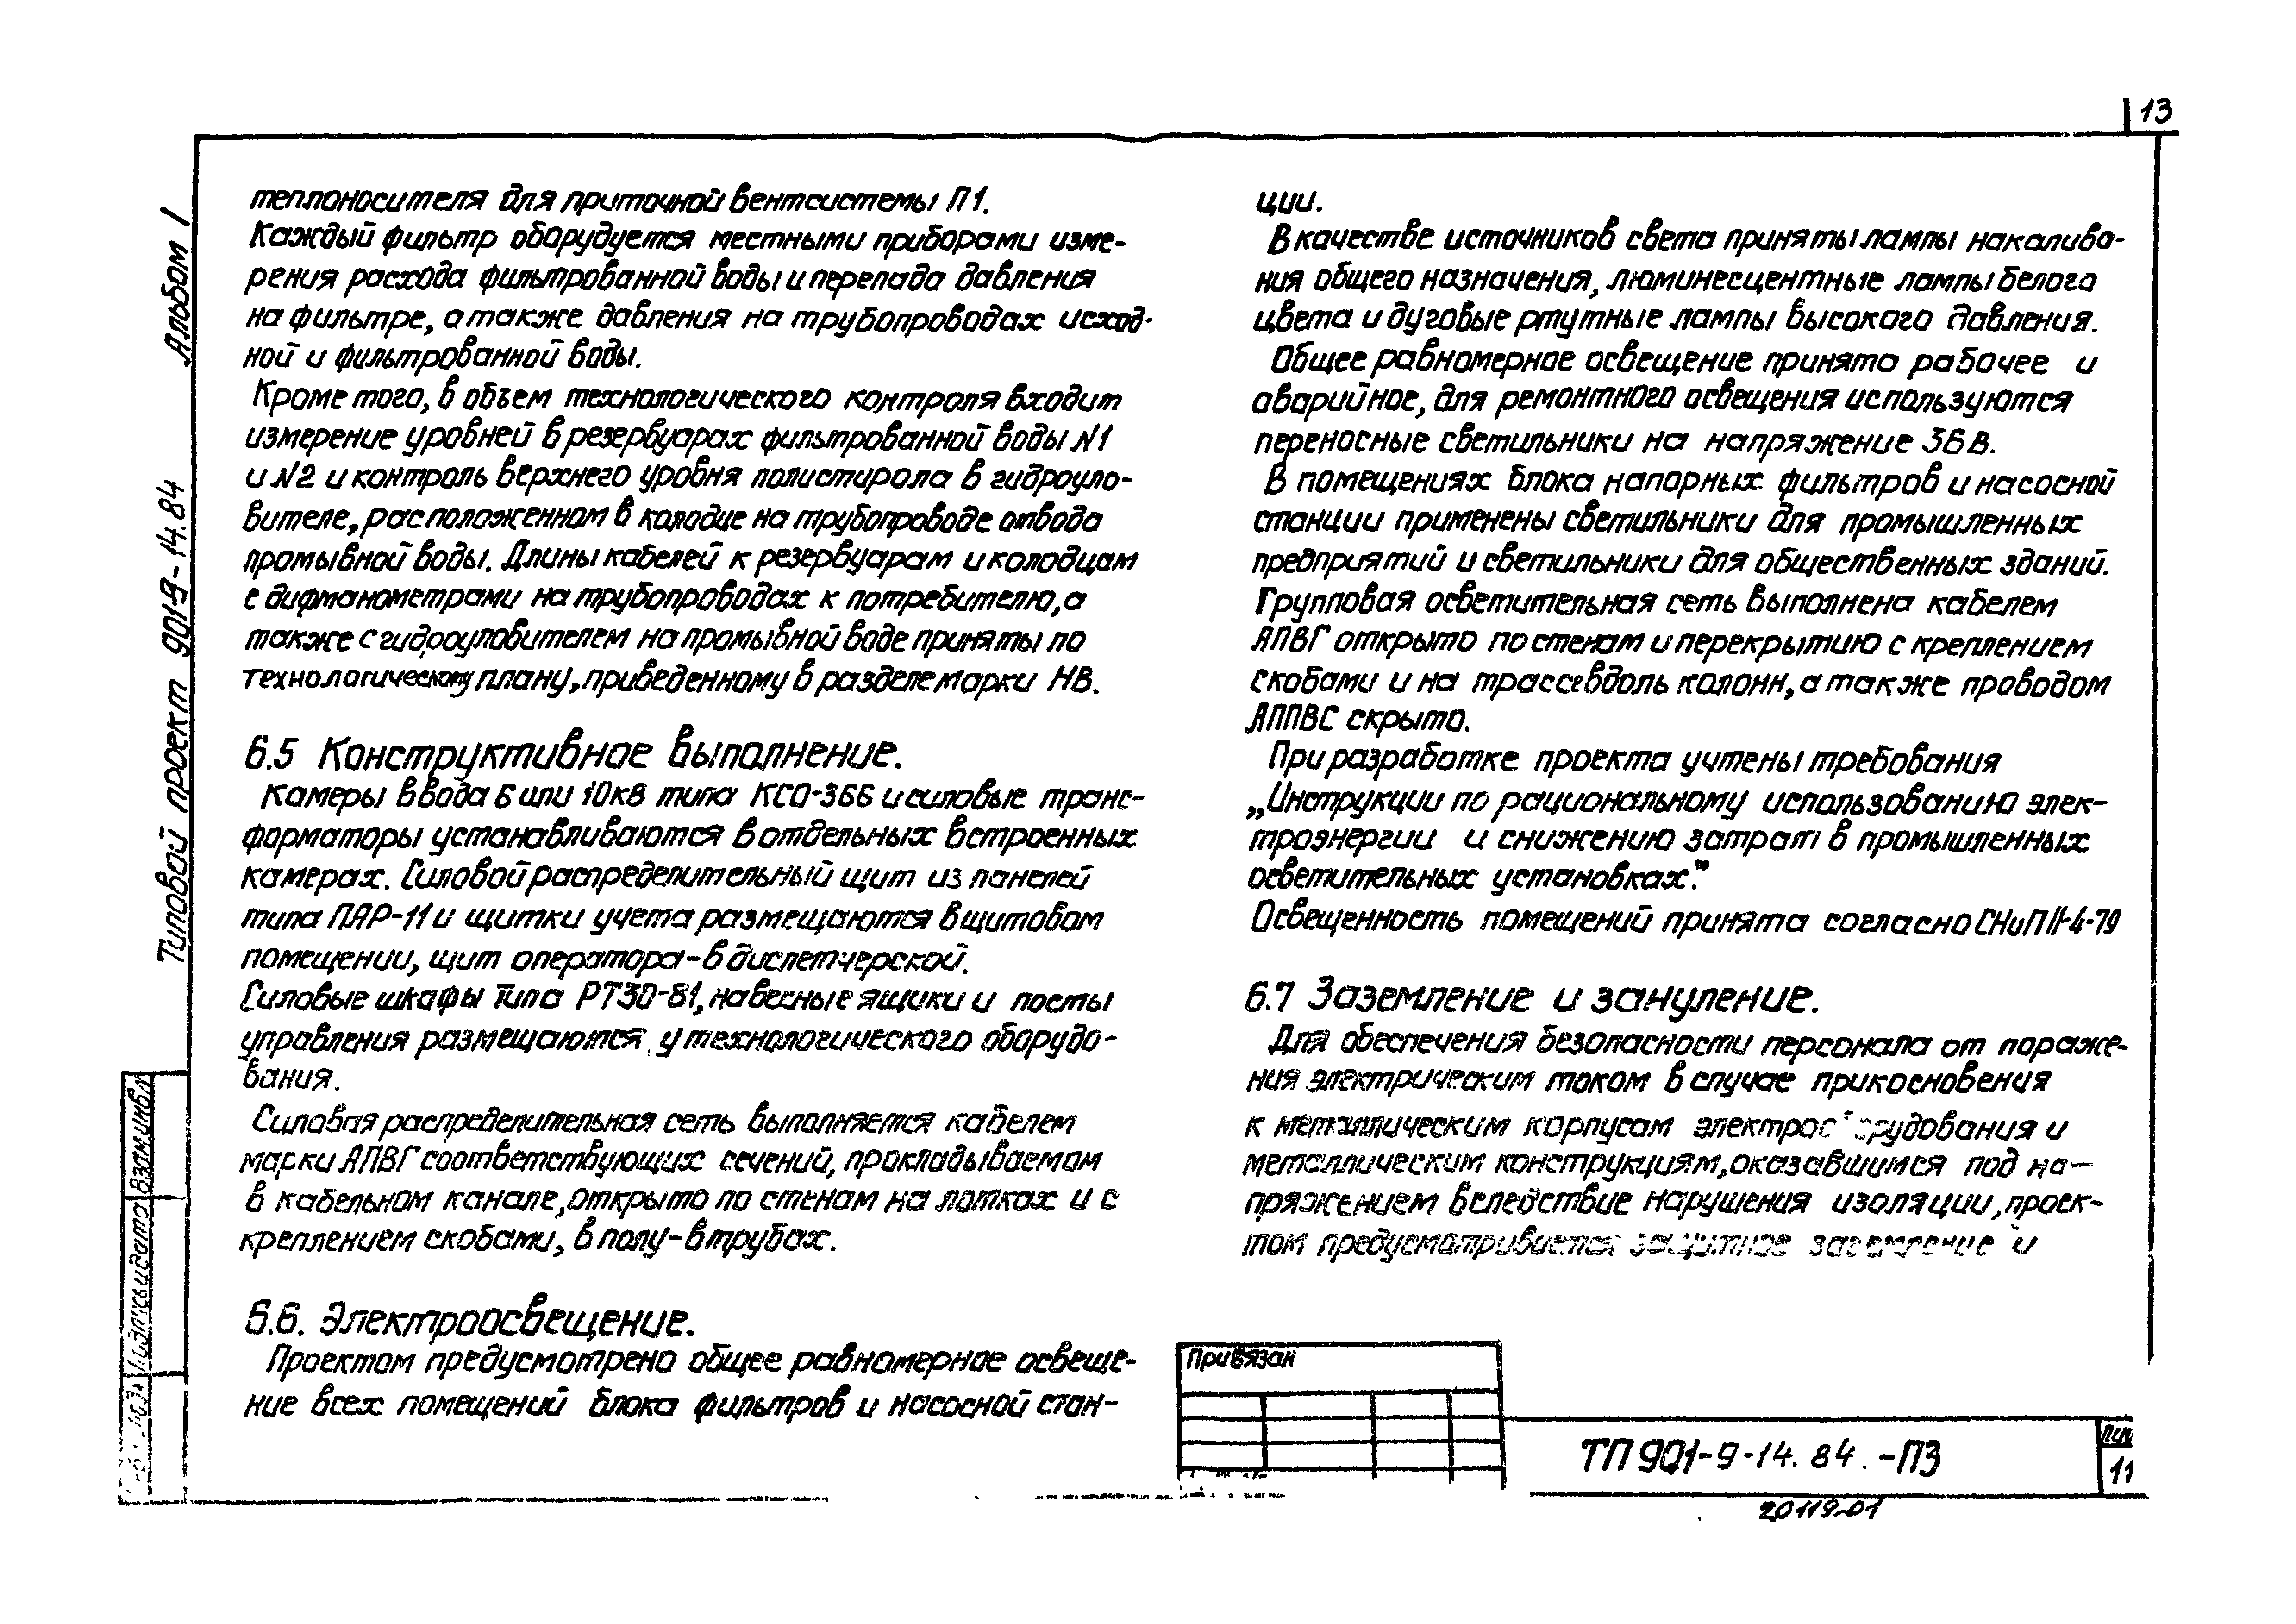 13
Альбом I
Типовой проект 901-9-14.84
теплоносителя для приточной вентсистемы П1.
Каждый фильтр оборудуется местными приборами изме-
рения расхода фильтрованной воды и перепада давления
на фильтре, а также давления на трубопроводах исход-
ной и фильтрованной воды.
Кроме того, в объем технологического контроля входит
измерение уровней в резервуарах фильтрованной воды N1
и N2 и контроль верхнего уровня полистирола в гидроуло-
вителе, расположенном в колодце на трубопроводе отвода
промывной воды. Длины кабелей к резервуарам и колодцам
с дифманометрами на трубопроводах к потребителю, а
также с гидроуловителем на промывной воде приняты по
технологическому плану, приведенному в разделе марки НВ.
6.5 Конструктивное выполнение.
Камеры ввода 6 или 10кв типа КСО-366 и силовые транс-
форматоры устанавливаются в отдельных встроенных
камерах. Силовой распределительный щит из панелей
типа ПАР-11 и щитки учета размещаются в щитовом
помещении, щит оператора-в диспетчерской.
Силовые шкафы типа РТ30-81, навесные ящики и посты
управления размещаются у технологического оборудо-
вания.
Силовая распределительная сеть выполняется кабелем
марки АПВГ соответствующих сечений, прокладываемом
в кабельном канале, открыто по стенам на лотках и с
креплением скобами, в полу-в трубах.
6.6. Электроосвещение.
Проектом предусмотрено общее равномерное освеще-
ние всех помещений блока фильтров и насосной стан-
ции.
В качестве источников света приняты лампы накалива-
ния общего назначения, люминесцентные лампы белого
цвета и дуговые ртутные лампы высокого давления.
Общее равномерное освещение принято рабочее и
аварийное, для ремонтного освещения используются
переносные светильники на напряжение 36в.
В помещениях блока напорных фильтров и насосной
станции применены светильники для промышленных
предприятий и светильники для общественных зданий.
Групповая осветительная сеть выполнена кабелем
АПВГ открыто по стенам и перекрытию с креплением
скобами и на трассе вдоль колонн, а также проводом
АППВС скрыто.
При разработке проекта учтены требования
„Инструкции по рациональному использованию элек-
троэнергии и снижению затрат в промышленных
осветительных установках."
Освещенность помещений принята согласно СНиП II-4-79
6.7 Заземление и зануление.
Для обеспечения безопасности персонала от пораже-
ния электрическим током в случае прикосновения
к металлическим корпусам электрооборудования и
металлическим конструкциям, оказавшимся под на-
пряжением вследствие нарушения изоляции, проек-
том предусматривается защитное заземление и
Взам.инв.
Подпись и дата
Привязан
ТП 901-9-14.84.-ПЗ
Лист
11
20119-01